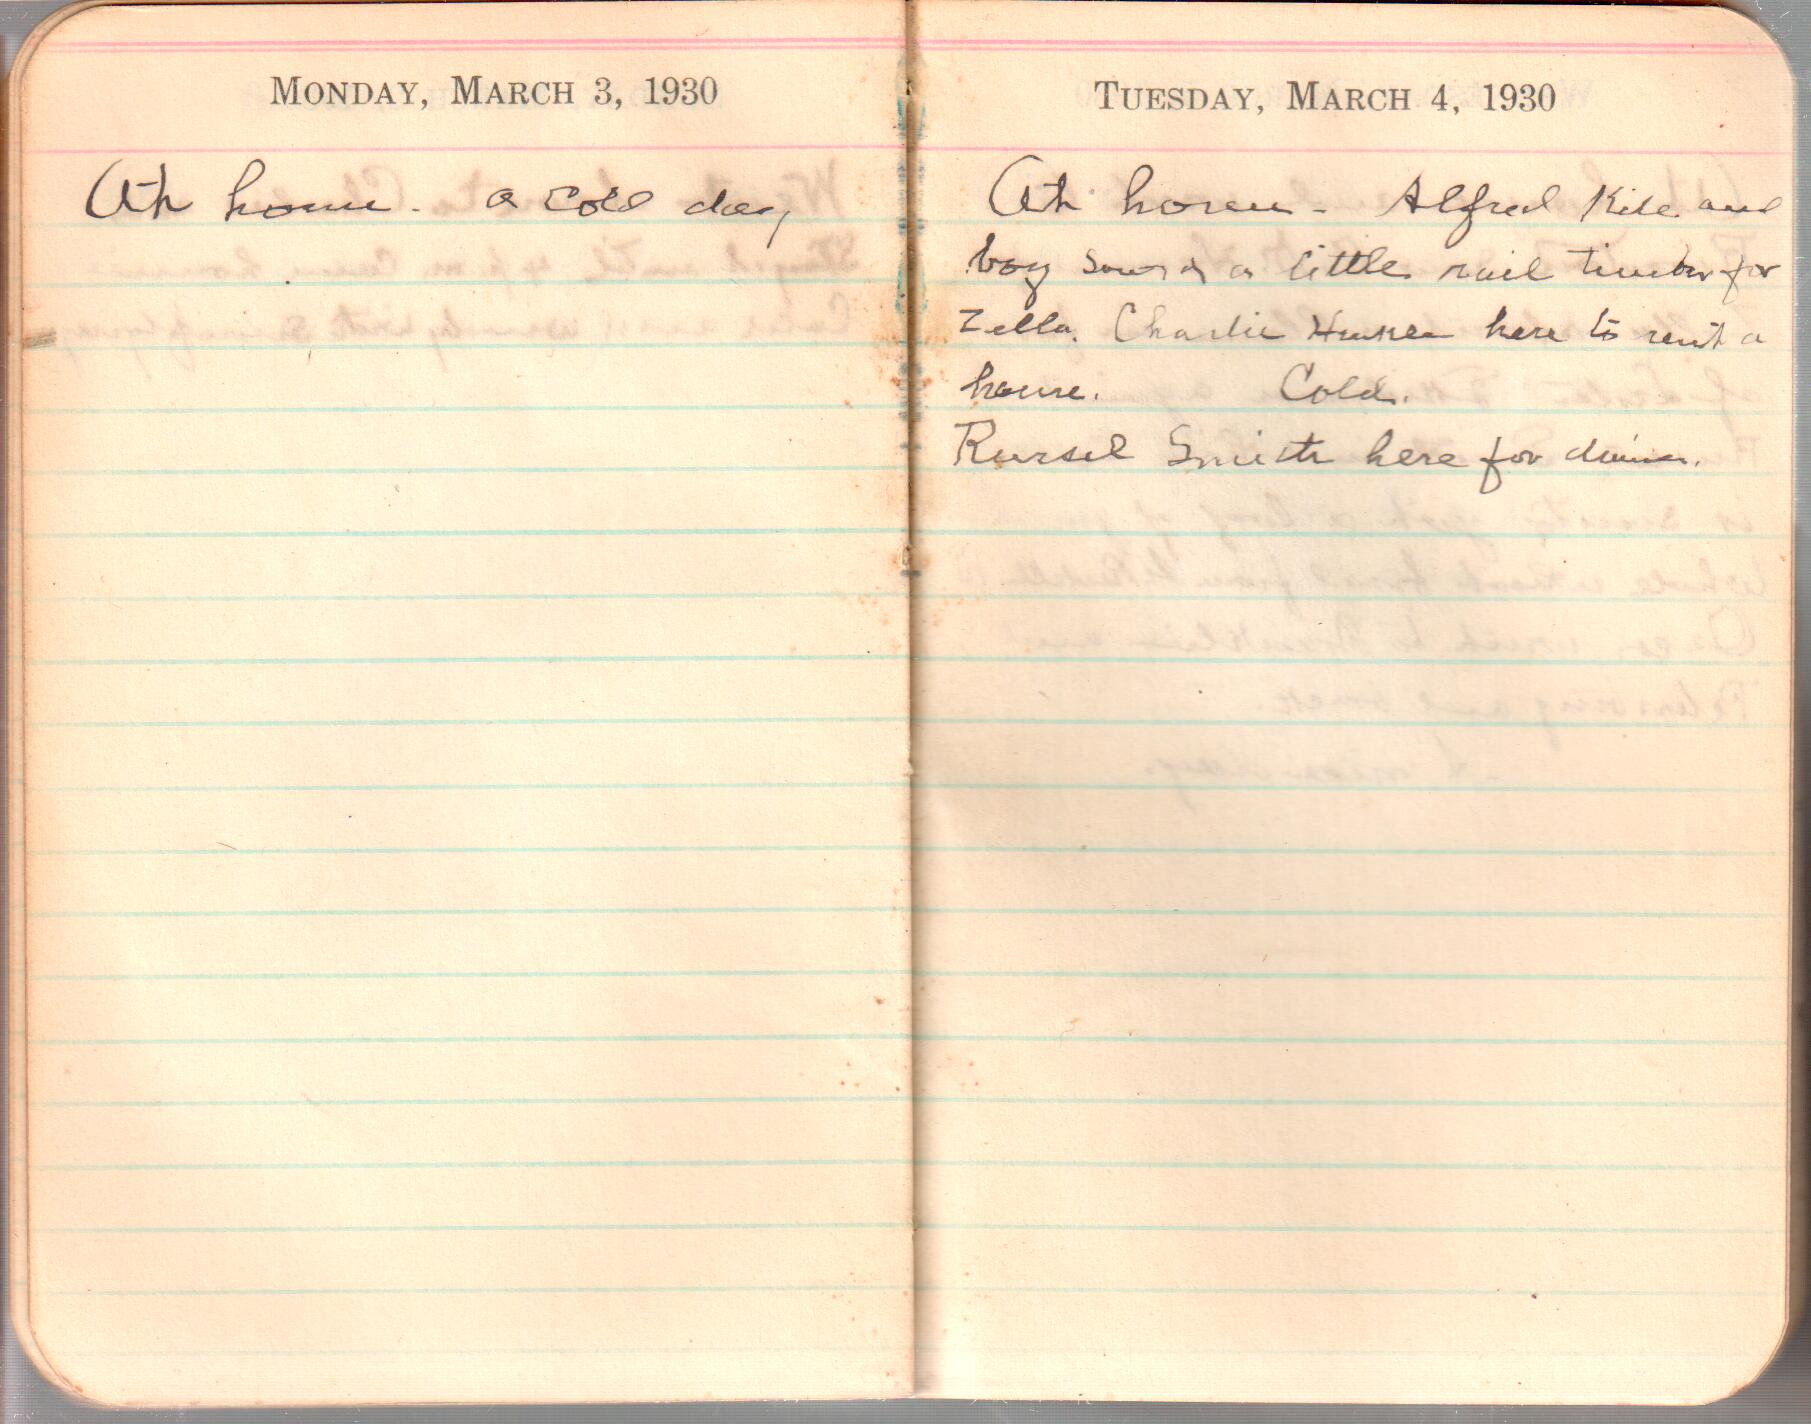 MONDAY, MARCH 3, 1930
At home. a cold day
TUESDAY, MARCH 4, 1930
At home - Alfred Kite and
boy sawed a little rail timber for
Zella. Charlie here to rent a
house. Cold.
Russel Smith here for dinner.